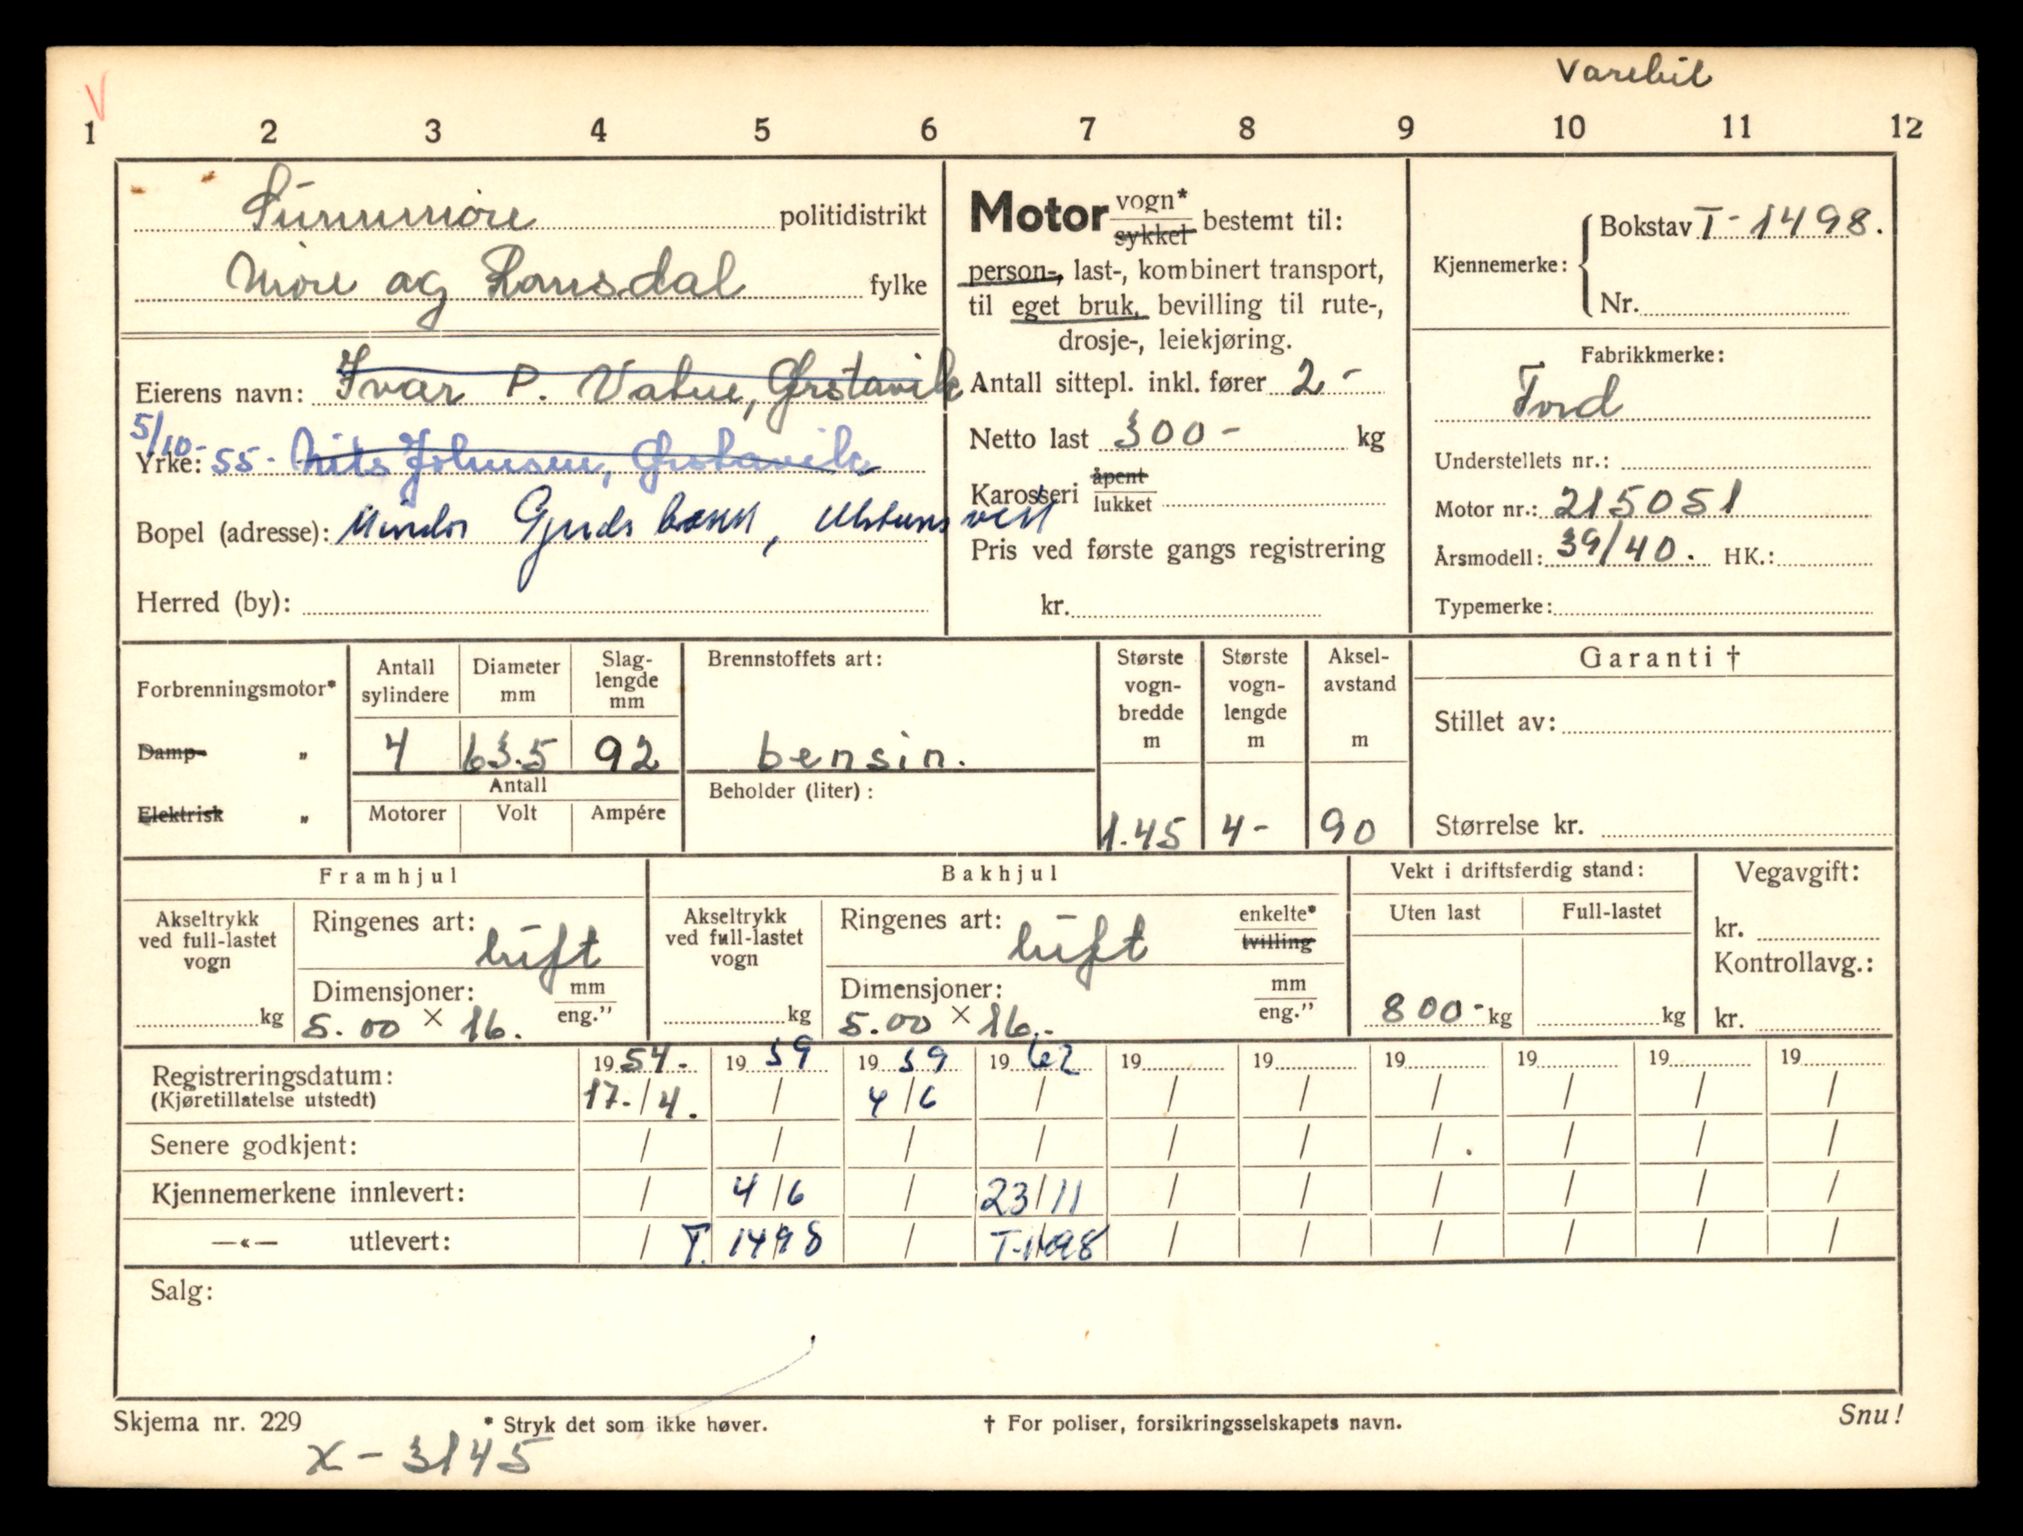 Varebil
1 2 3 4 5 6 7 8 9 10 11 12
Sunnmøre politidistrikt
Møre og Romsdal fylke
Eierens navn: Ivar P. Vatne, Ørstavik.
5/10-55- Nils Johnsen, Ørstavik
Yrke:
Bopel (adresse): Mindor Gjerdsbakk, Ulsteinvik
Herred (by):
Motor vogn* sykkel bestemt til:
person-, last-, kombinert transport,
til eget bruk, bevilling til rute-,
drosje-, leiekjøring.
Antall sittepl. inkl. fører 2-
Netto last 300- kg
Karosseri åpent lukket
Pris ved første gangs registrering
kr.
Kjennemerke: Bokstav T-1498.
Nr.
Fabrikkmerke:
Ford
Understellets nr.:
Motor nr.: 215051
Årsmodell: 39/40. HK.:
Typemerke:
Forbrenningsmotor*
Damp- "
Elektrisk "
Antall sylindere
4
Diameter mm
63.5
Slag-
lengde
mm
92
Antall
Motorer Volt Ampére
Brennstoffets art:
bensin.
Beholder (liter):
Største
vogn-
bredde
m
1.45
Største
vogn-
lengde
m
4-
Aksel-
avstand
m
90
Garanti †
Stillet av:
Størrelse kr.
Framhjul
Akseltrykk
ved full-lastet
vogn
kg
Ringenes art: luft
Dimensjoner: mm eng."
5.00 × 16.
Bakhjul
Akseltrykk
ved full-lastet
vogn
kg
Ringenes art: luft
enkelte*
tvilling
Dimensjoner: mm eng."
5.00 × 16.-
Vekt i driftsferdig stand:
Uten last Full-lastet
800- kg kg
Vegavgift:
kr.
Kontrollavg.:
kr.
1954. 1959 1959 1962 19 19 19 19 19 19
Registreringsdatum:
(Kjøretillatelse utstedt)
17./4. / 4/6 / / / / / / /
Senere godkjent: / / / / / / / / / /
Kjennemerkene innlevert: / 4/6 / 23/11 / / / / / /
—«— utlevert: / T. 1498 / T-1498 / / / / / /
Salg:
Skjema nr. 229 * Stryk det som ikke høver. † For poliser, forsikringsselskapets navn. Snu!
X-3145